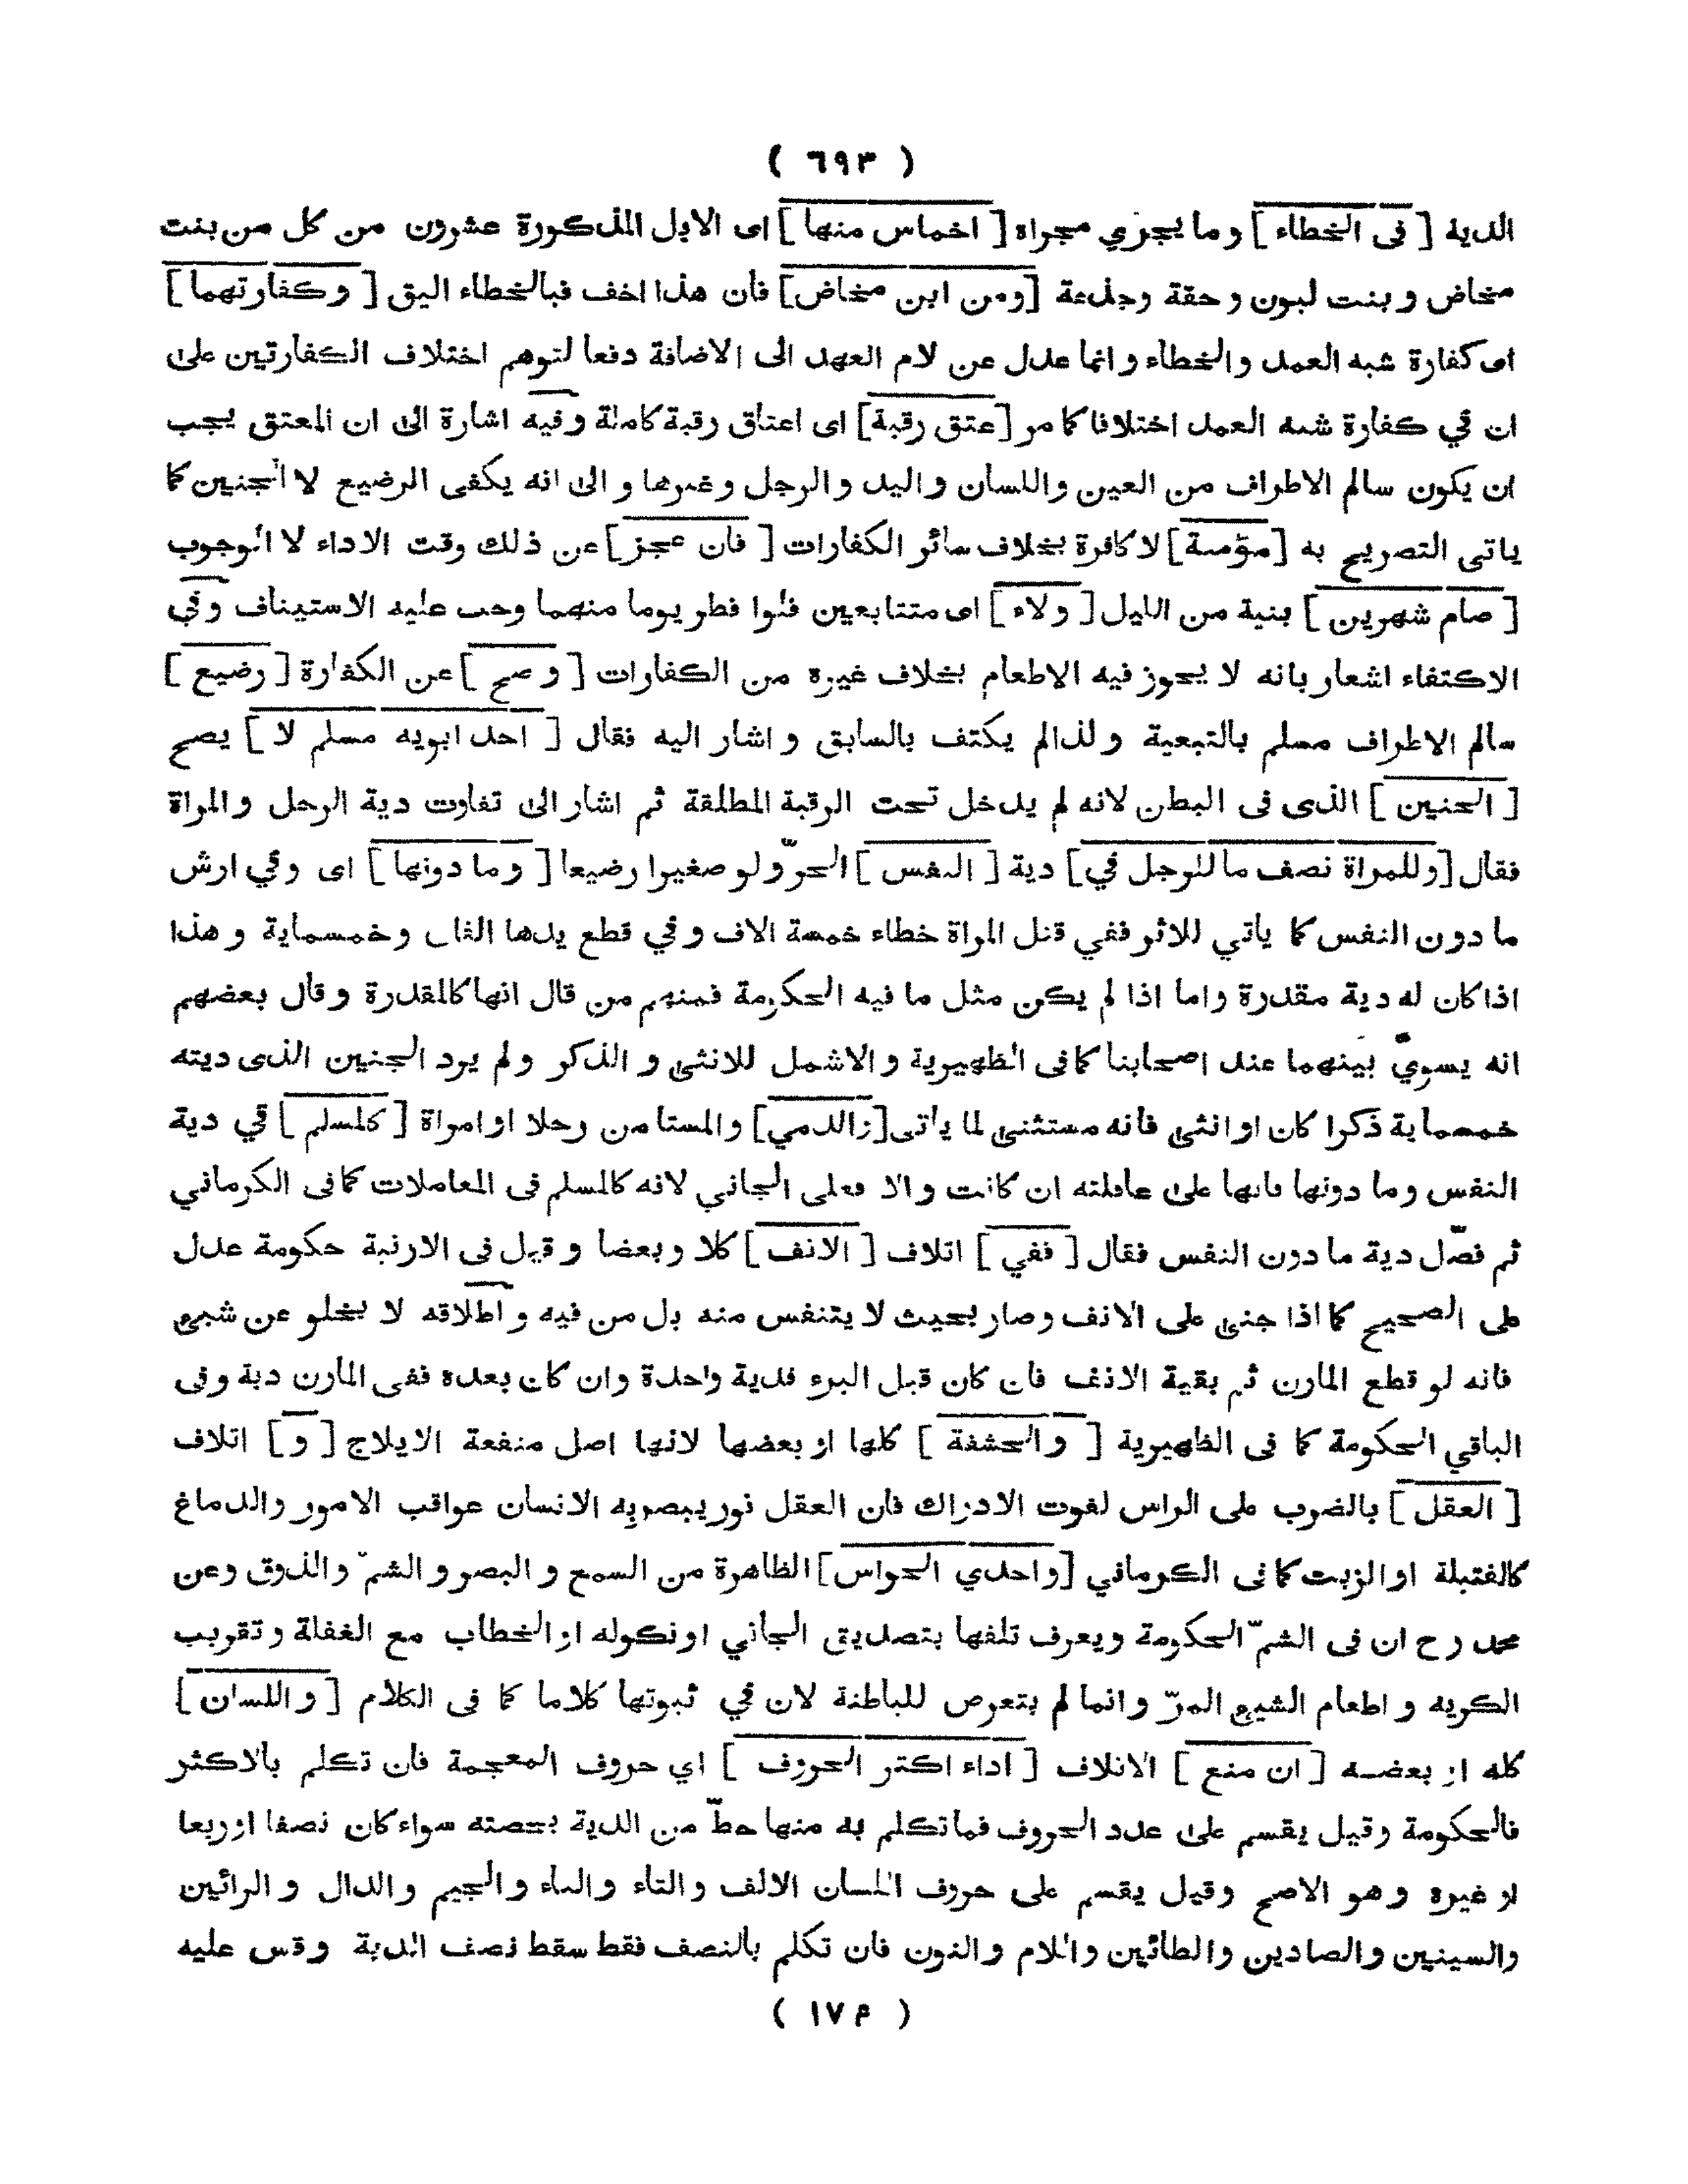 ( ٦٩٣ )
الدية [ فى الخطاء ] و ما يجزي مجراه [ اخماس منها ] اى الابل المذكورة عشرون من كل من بنت
مخاض و بنت لبون و حقة وجذعة [ومن ابن مخاض] فان هذا اخف فبالخطاء اليق [ وكفارتهما ]
اى كفارة شبه العمد والخطاء و انما عدل عن لام العهد الى الاضافة دفعا لتوهم اختلاف الكفارتين على
ان في كفارة شبه العمد اختلافا كما مر [عتق رقبة] اى اعتاق رقبة كاملة وفيه اشارة الى ان المعتق يجب
ان يكون سالم الاطراف من العين واللسان واليد والرجل وغيرها و الى انه يكفى الرضيع لا الجنين كما
ياتى التصريح به [مؤمنة] لا كافرة بخلاف سائر الكفارات [ فان عجز ] عن ذلك وقت الاداء لا الوجوب
[ صام شهرين ] بنية من الليل [ ولاء ] اى متتابعين فلوا فطر يوما منهما وجب عليه الاستيناف وفي
الاكتفاء اشعار بانه لا يجوز فيه الاطعام بخلاف غيره من الكفارات [ و صح ] عن الكفارة [ رضيع ]
سالم الاطراف مسلم بالتبعية ولذالم يكتف بالسابق و اشار اليه فقال [ احد ابويه مسلم لا ] يصح
[ الجنين ] الذى فى البطن لانه لم يدخل تحت الرقبة المطلقة ثم اشار الى تفاوت دية الرجل والمراة
فقال [وللمراة نصف ما للرجل في] دية [ النفس ] الحرّ ولو صغيرا رضيعا [ وما دونها ] اى وفي ارش
ما دون النفس كما ياتي للاثر ففي قتل المراة خطاء خمسة الاف وفي قطع يدها الفان وخمسماية وهذا
اذا كان له دية مقدرة واما اذا لم يكن مثل ما فيه الحكومة فمنهم من قال انها كالمقدرة وقال بعضهم
انه يسويّ بينهما عند اصحابنا كما فى الظهيرية و الاشمل للانثى و الذكر ولم يرد الجنين الذى ديته
خمسماية ذكرا كان او انثى فانه مستثنى لما ياتى [والذمي] والمستامن رجلا او امراة [ كالمسلم ] في دية
النفس وما دونها فانها على عاقلته ان كانت والا فعلى الجاني لانه كالمسلم فى المعاملات كما فى الكرماني
ثم فصّل دية ما دون النفس فقال [ ففي ] اتلاف [ الانف ] كلا وبعضا و قيل فى الارنبة حكومة عدل
على الصحيح كما اذا جنى على الانف وصار بحيث لا يتنفس منه بل من فيه و اطلاقه لا يخلو عن شىء
فانه لو قطع المارن ثم بقية الانف فان كان قبل البرء فدية واحدة وان كان بعده ففى المارن دية وفى
الباقي الحكومة كما فى الظهيرية [ و الحشفة ] كلها او بعضها لانها اصل منفعة الايلاج [ و ] اتلاف
[ العقل ] بالضرب على الراس لفوت الادراك فان العقل نور يبصر به الانسان عواقب الامور والدماغ
كالفتيلة او الزيت كما فى الكرماني [واحدي الحواس] الظاهرة من السمع و البصر و الشمّ والذوق وعن
محمد رح ان فى الشمّ الحكومة ويعرف تلفها بتصديق الجاني او نكوله او الخطاب مع الغفلة وتقريب
الكريه و اطعام الشيء المرّ وانما لم يتعرض للباطنة لان في ثبوتها كلاما كما فى الكلام [ واللسان ]
كله او بعضه [ ان منع ] الاتلاف [ اداء اكثر الحروف ] اي حروف المعجمة فان تكلم بالاكثر
فالحكومة وقيل يقسم على عدد الحروف فما تكلم به منها حطّ من الدية بحصته سواء كان نصفا او ربعا
او غيره وهو الاصح وقيل يقسم على حروف اللسان الالف والتاء والثاء والجيم والدال والرائين
والسينين والصادين والطائين واللام والنون فان تكلم بالنصف فقط سقط نصف الدية وقس عليه
( ١٧م )